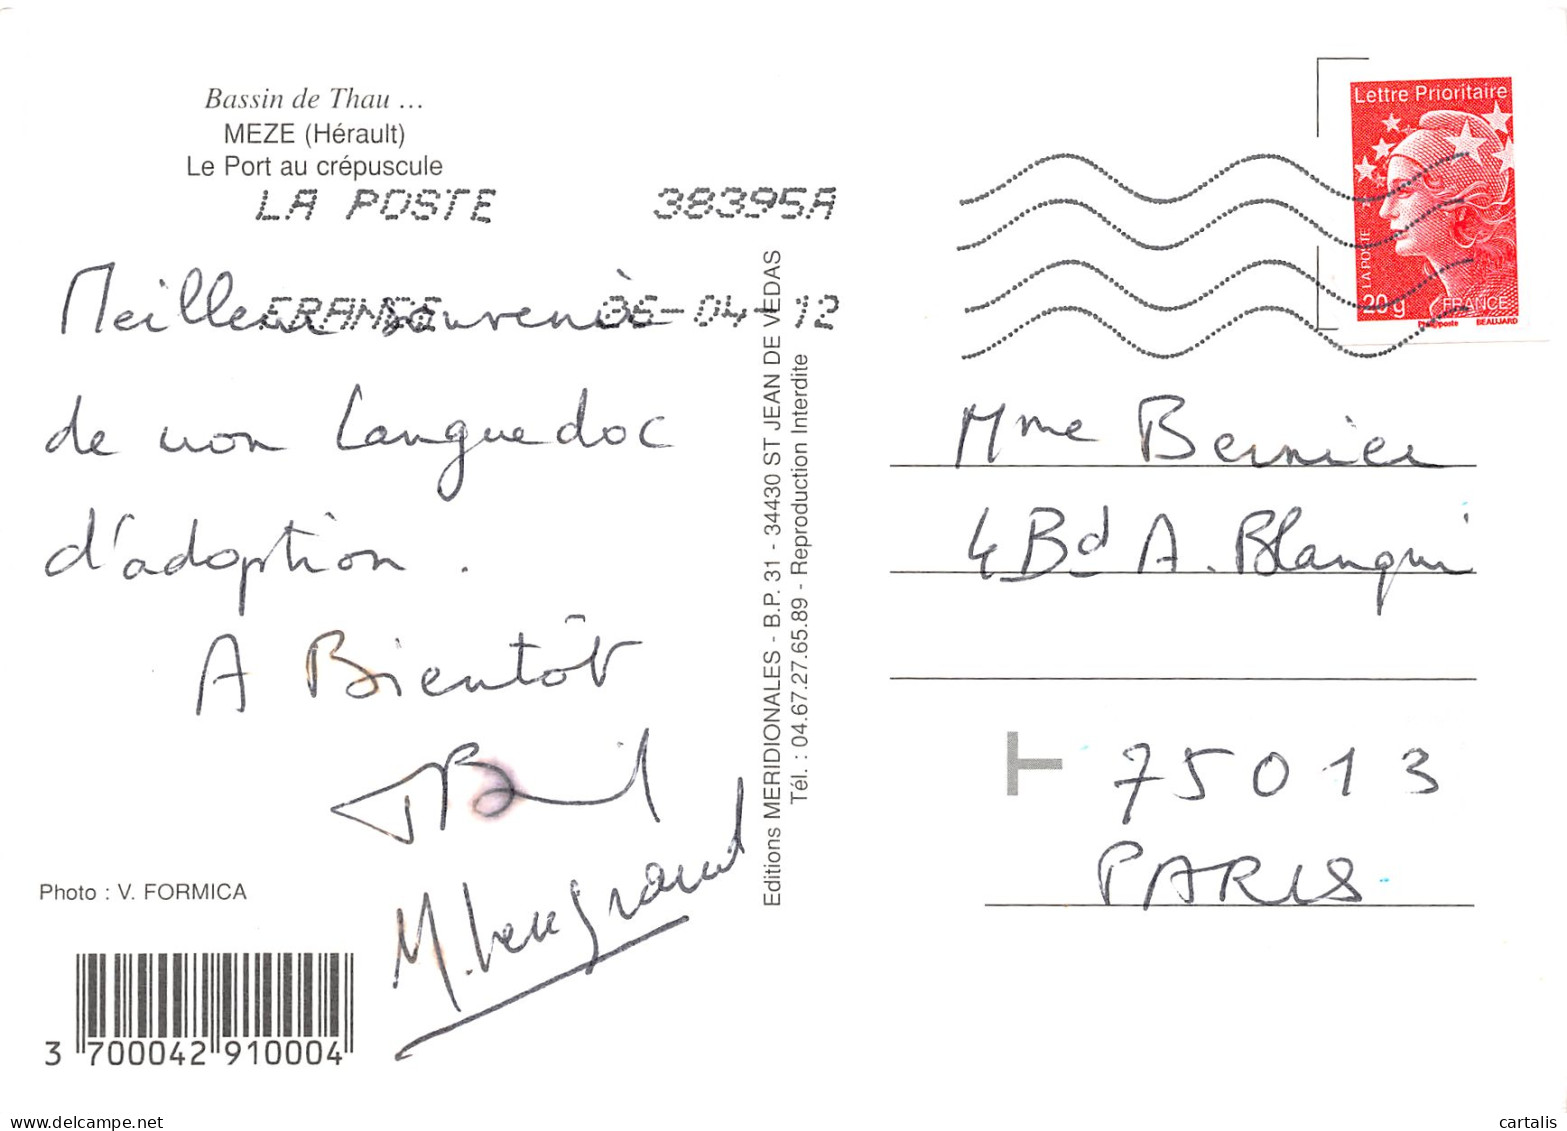 Bassin de Thau ...
MEZE (Hérault)
Le Port au crépuscule
LA POSTE 38395A
FRANCE 06-04-12
Meilleur souvenir
de mon Languedoc
d'adoption .
A Bientôt
Photo : V. FORMICA
3 700042 910004
Editions MERIDIONALES - B.P. 31 - 34430 ST JEAN DE VEDAS
Tél. : 04.67.27.65.89 - Reproduction Interdite
Lettre Prioritaire
LA POSTE
20g FRANCE
Phil@poste BEAUJARD
Mme Bernier
4 Bd A. Blanqui
T 75013
PARIS
delcampe.net
cartalis